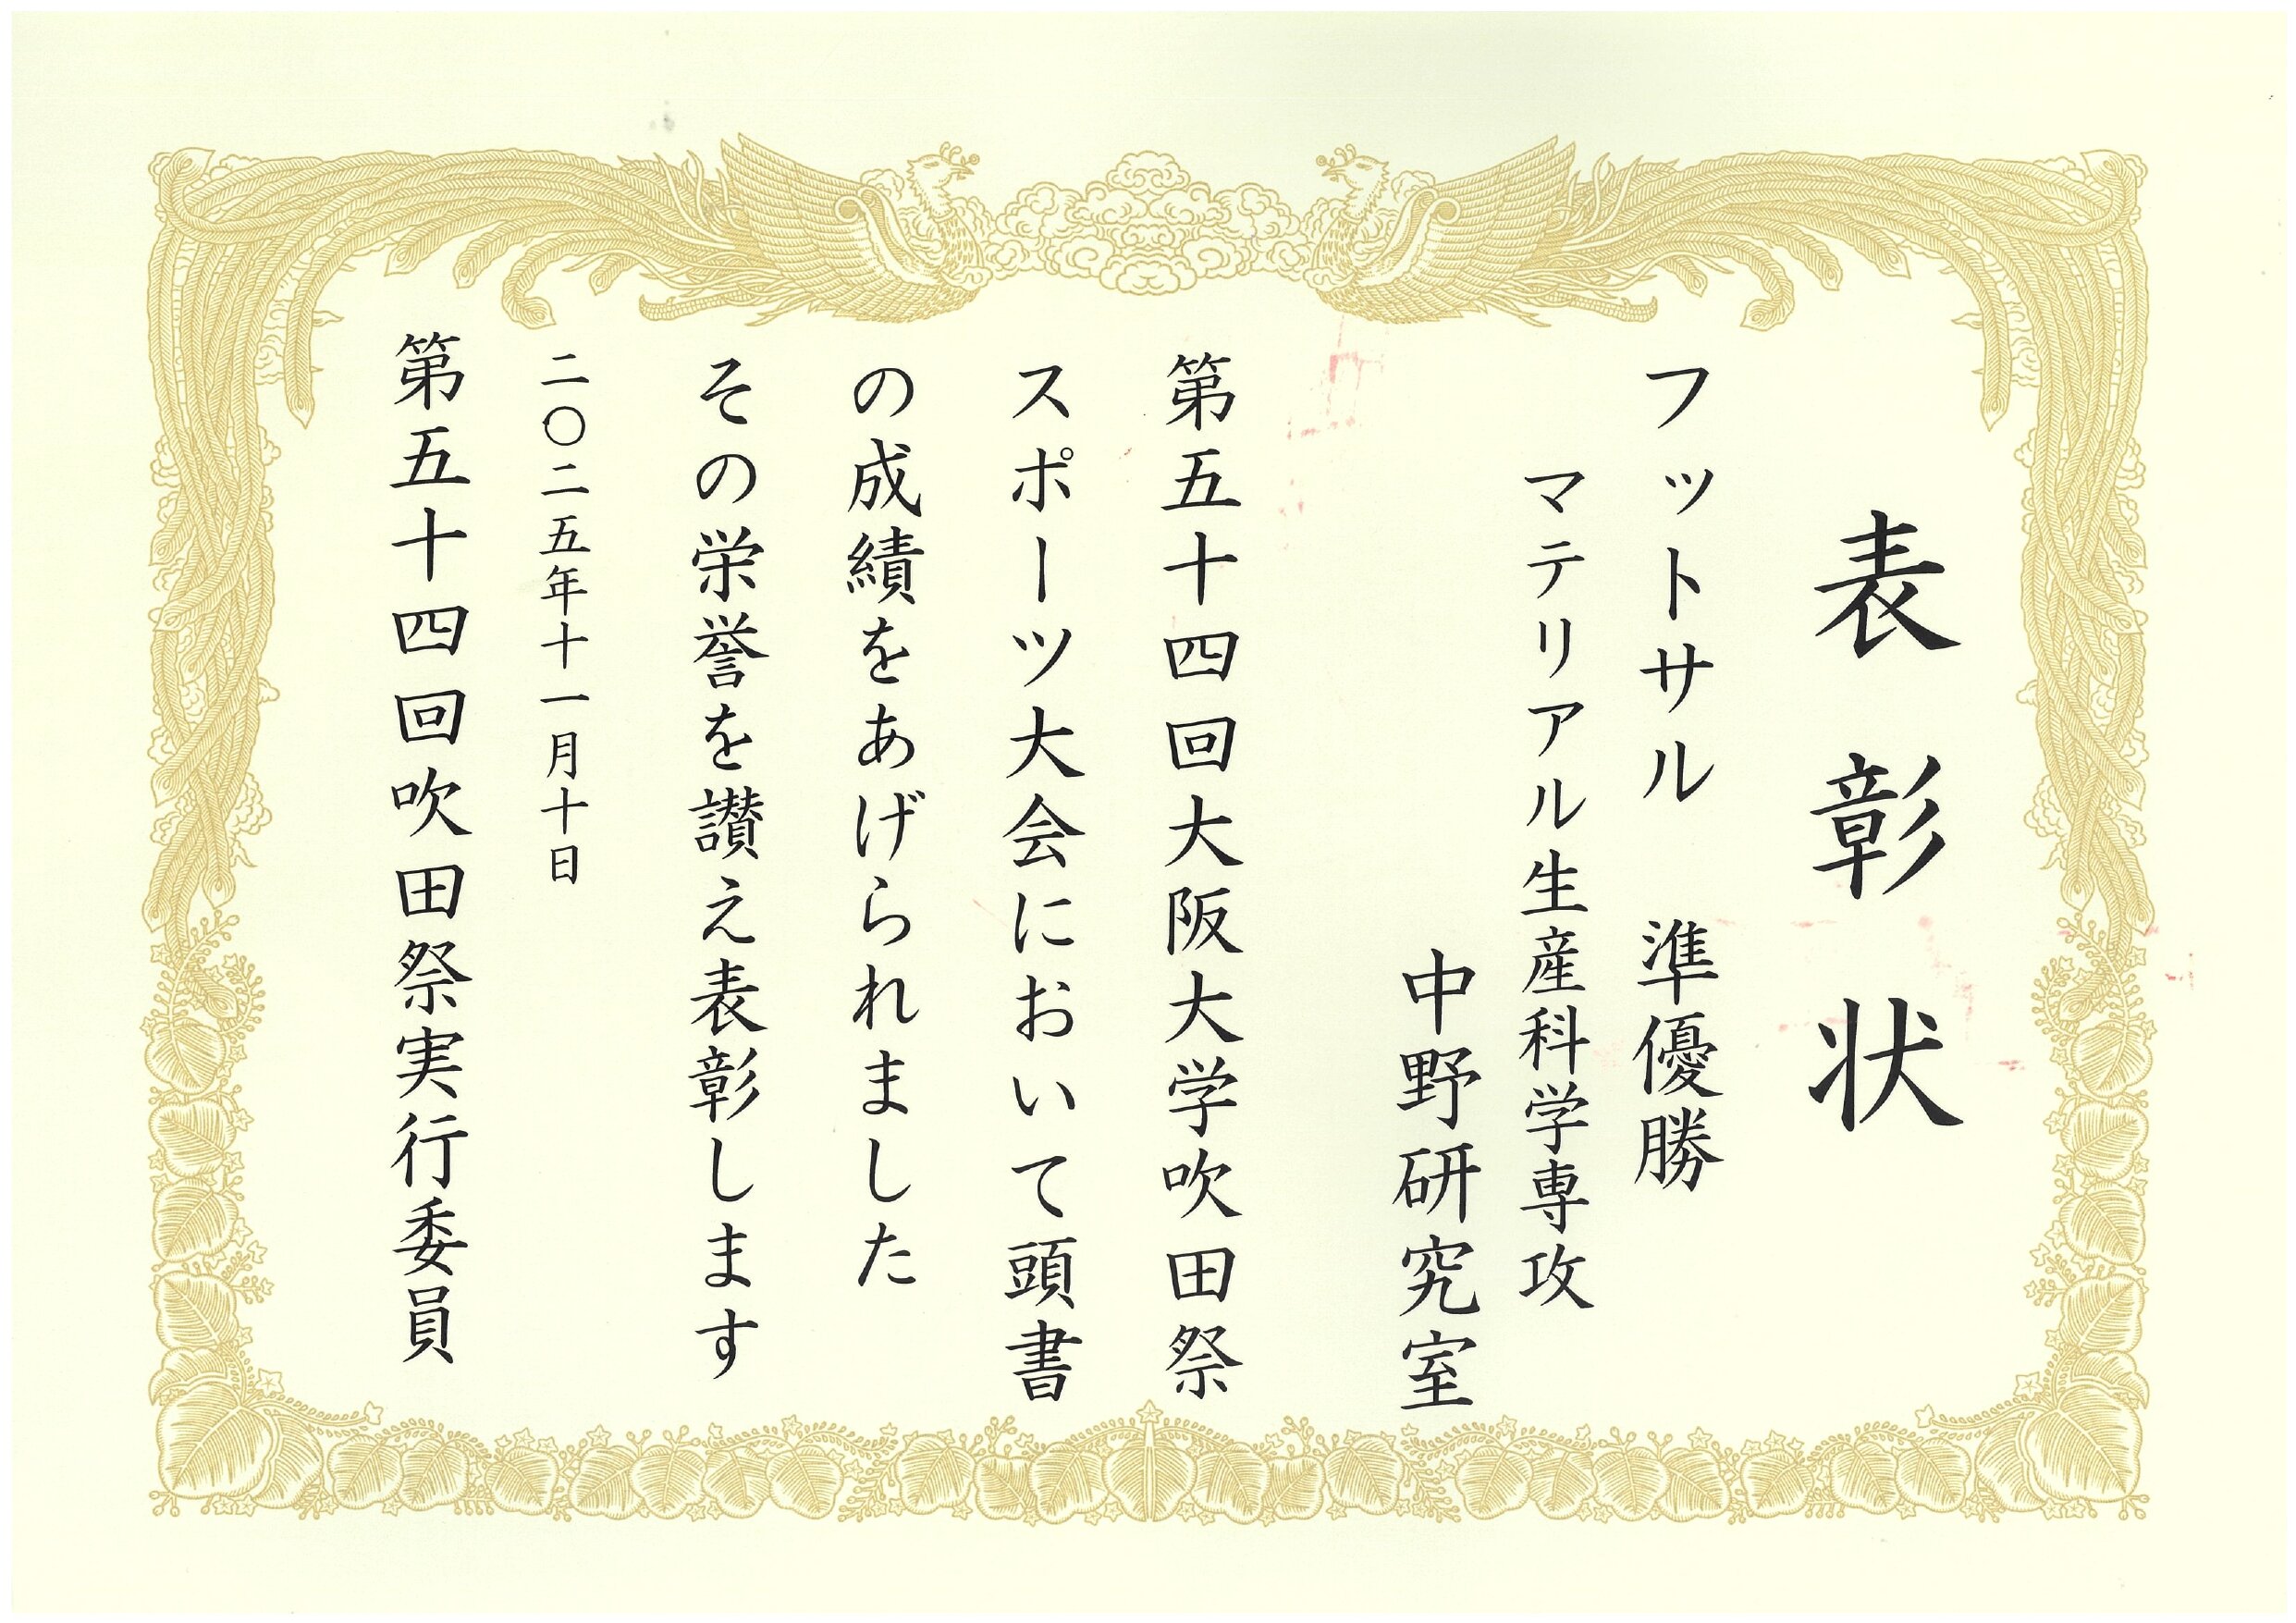 表彰状
フットサル 準優勝
マテリアル生産科学専攻
中野研究室
第五十四回大阪大学吹田祭
スポーツ大会において頭書
の成績をあげられました
その栄誉を讃え表彰します
二〇二五年十一月十日
第五十四回吹田祭実行委員